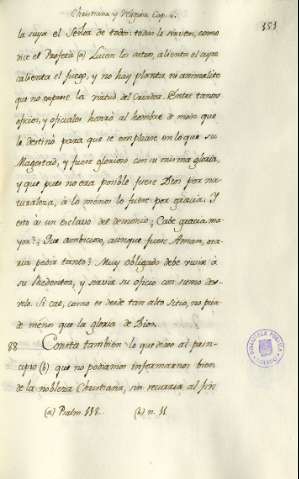 Christiana y Religiosa Cap. 4.
151
la cuya el Señor de todo: todas le sirven, como
dice el Profeta (a) Lucen los astros, alienta el ayre
calienta el fuego, y no hay planta ni animalito
que no exprese la virtud del Criador. Entre tantos
oficios, y oficiales honró al hombre de modo que
le destinó para que se emplease en lo que su
Magestad, y fuese glorioso con su misma gloria,
y que pues no era posible fuese Dios por na-
turaleza, à lo menos lo fuese por gracia. Y
esto à un esclavo del demonio; Cabe gracia ma-
yor? Que ambicion, aunque fuese Aman, osa-
ria pedir tanto? Muy obligado debe vivir à
su Redentor, y servir su oficio con sumo des-
velo. Si cae, como es desde tan alto sitio, no pier-
de menos que la gloria de Dios.
88 Consta tambien lo que dixe al prin-
cipio (b) que no podiamos informarnos bien
de la nobleza Christiana, sin recurrir al fin
(a) Psalm. 118. (b) n. 11
BIBLIOTECA PUBLICA